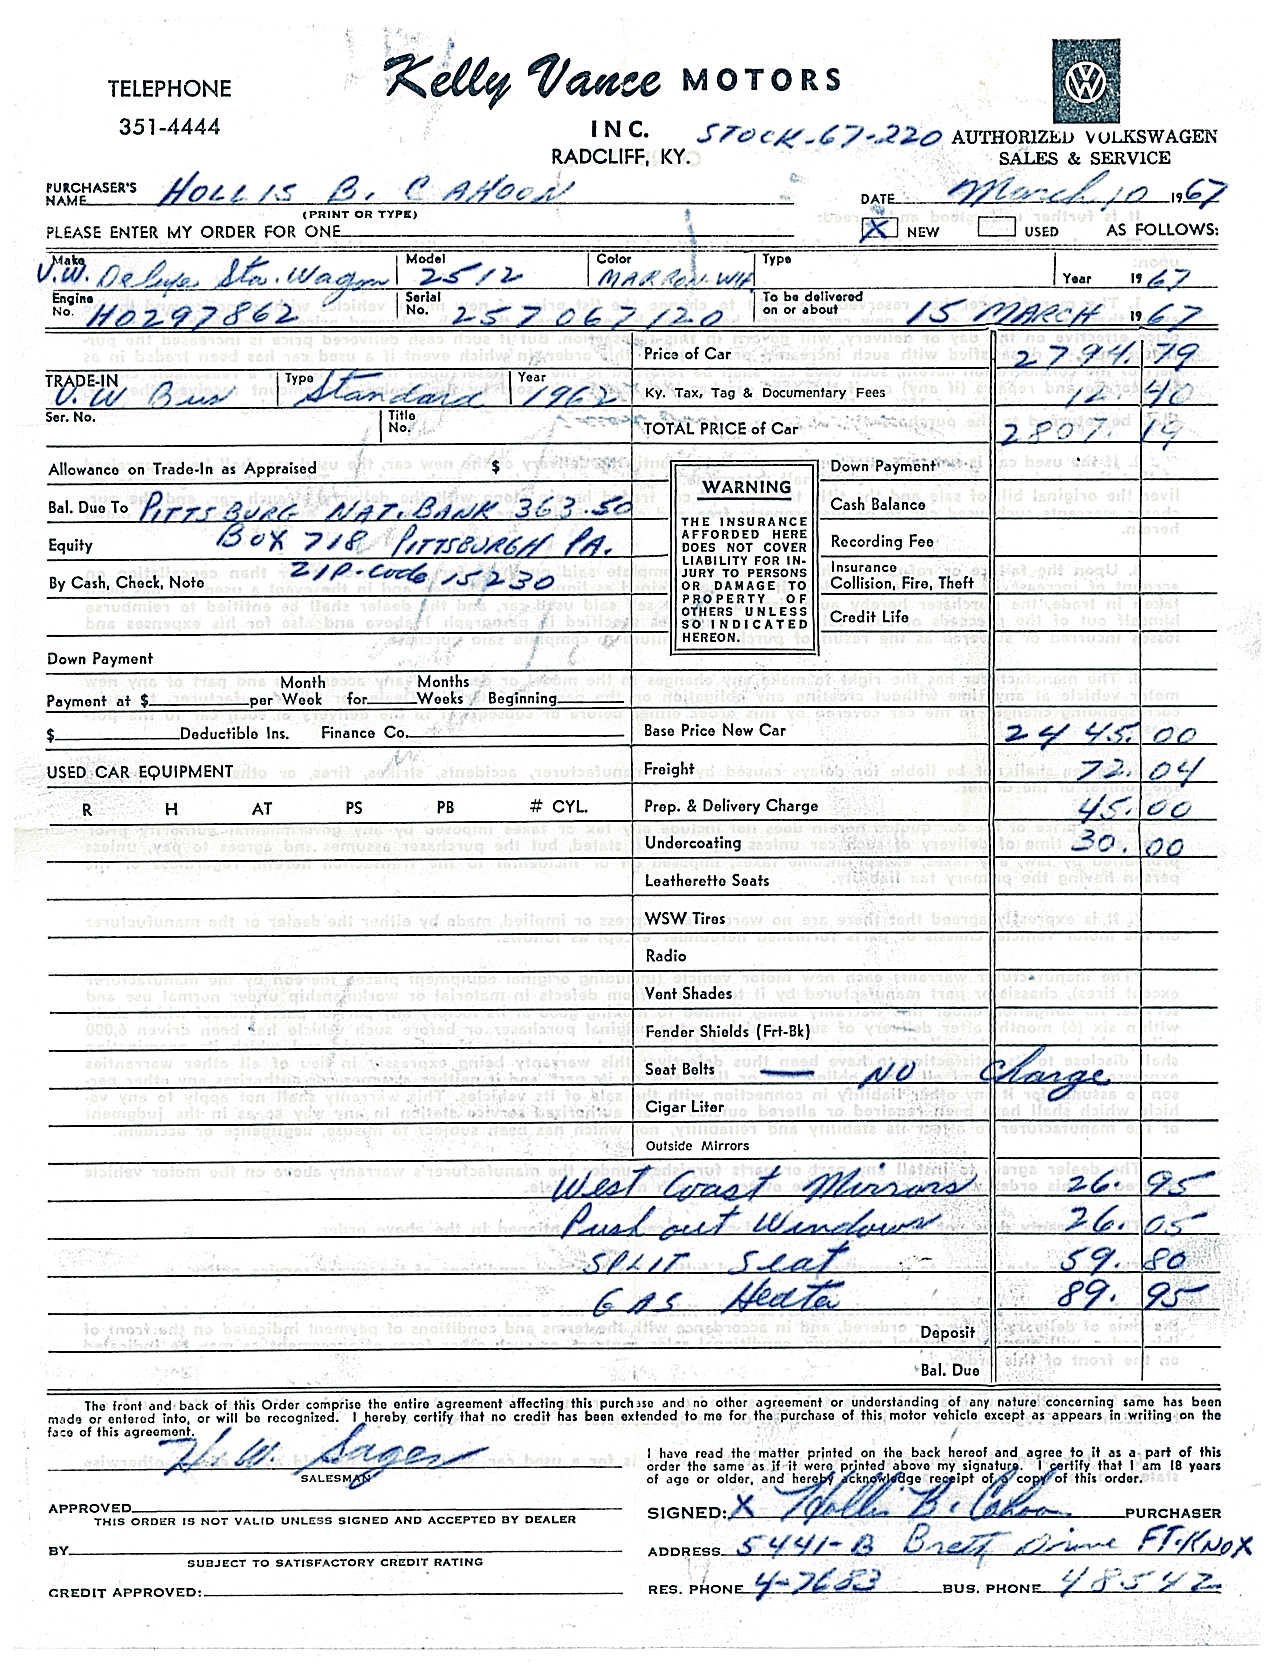 TELEPHONE
351-4444
Kelly Vance MOTORS
INC.
RADCLIFF, KY.
STOCK-67-220
AUTHORIZED VOLKSWAGEN
SALES & SERVICE
PURCHASER'S NAME HOLLIS B. CAHOON
(PRINT OR TYPE)
DATE March 10 1967
PLEASE ENTER MY ORDER FOR ONE X NEW USED AS FOLLOWS:
Make V.W. Deluxe Sta. Wagon Model 2512 Color MARRON-WH Type Year 1967
Engine No. H0297862 Serial No. 257067120 To be delivered on or about 15 MARCH 1967
Price of Car 2794.79
TRADE-IN V.W Bus Type Standard Year 1962
Ky. Tax, Tag & Documentary Fees 12.40
Ser. No. Title No.
TOTAL PRICE of Car 2807.19
Allowance on Trade-In as Appraised $
Down Payment
Bal. Due To PITTSBURG NAT. BANK 363.50
Cash Balance
Equity BOX 718 PITTSBURGH PA.
Recording Fee
By Cash, Check, Note ZIP-Code 15230
Insurance
Collision, Fire, Theft
Credit Life
WARNING
THE INSURANCE
AFFORDED HERE
DOES NOT COVER
LIABILITY FOR IN-
JURY TO PERSONS
OR DAMAGE TO
PROPERTY OF
OTHERS UNLESS
SO INDICATED
HEREON.
Down Payment
Payment at $ per Month Week for Months Weeks Beginning
$ Deductible Ins. Finance Co.
Base Price New Car 2445.00
USED CAR EQUIPMENT
Freight 72.04
R H AT PS PB # CYL.
Prep. & Delivery Charge 45.00
Undercoating 30.00
Leatherette Seats
WSW Tires
Radio
Vent Shades
Fender Shields (Frt-Bk)
Seat Belts — NO Charge
Cigar Liter
Outside Mirrors
West Coast Mirrors 26.95
Push out Windows 26.05
SPLIT Seat 59.80
GAS Heater 89.95
Deposit
Bal. Due
The front and back of this Order comprise the entire agreement affecting this purchase and no other agreement or understanding of any nature concerning same has been
made or entered into, or will be recognized. I hereby certify that no credit has been extended to me for the purchase of this motor vehicle except as appears in writing on the
face of this agreement.
H. W. Sager
SALESMAN
I have read the matter printed on the back hereof and agree to it as a part of this
order the same as if it were printed above my signature. I certify that I am 18 years
of age or older, and hereby acknowledge receipt of a copy of this order.
APPROVED
THIS ORDER IS NOT VALID UNLESS SIGNED AND ACCEPTED BY DEALER
SIGNED: X Hollis B. Cahoon PURCHASER
BY
SUBJECT TO SATISFACTORY CREDIT RATING
ADDRESS 5441-B Brett Drive FT. KNOX
CREDIT APPROVED:
RES. PHONE 4-7683 BUS. PHONE 48542